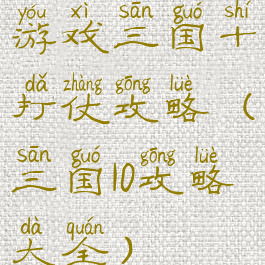 yóu xì sān guó shí
游戏三国十
dǎ zhàng gōng lüè
打仗攻略（
sān guó gōng lüè
三国10攻略
dà quán
大全）